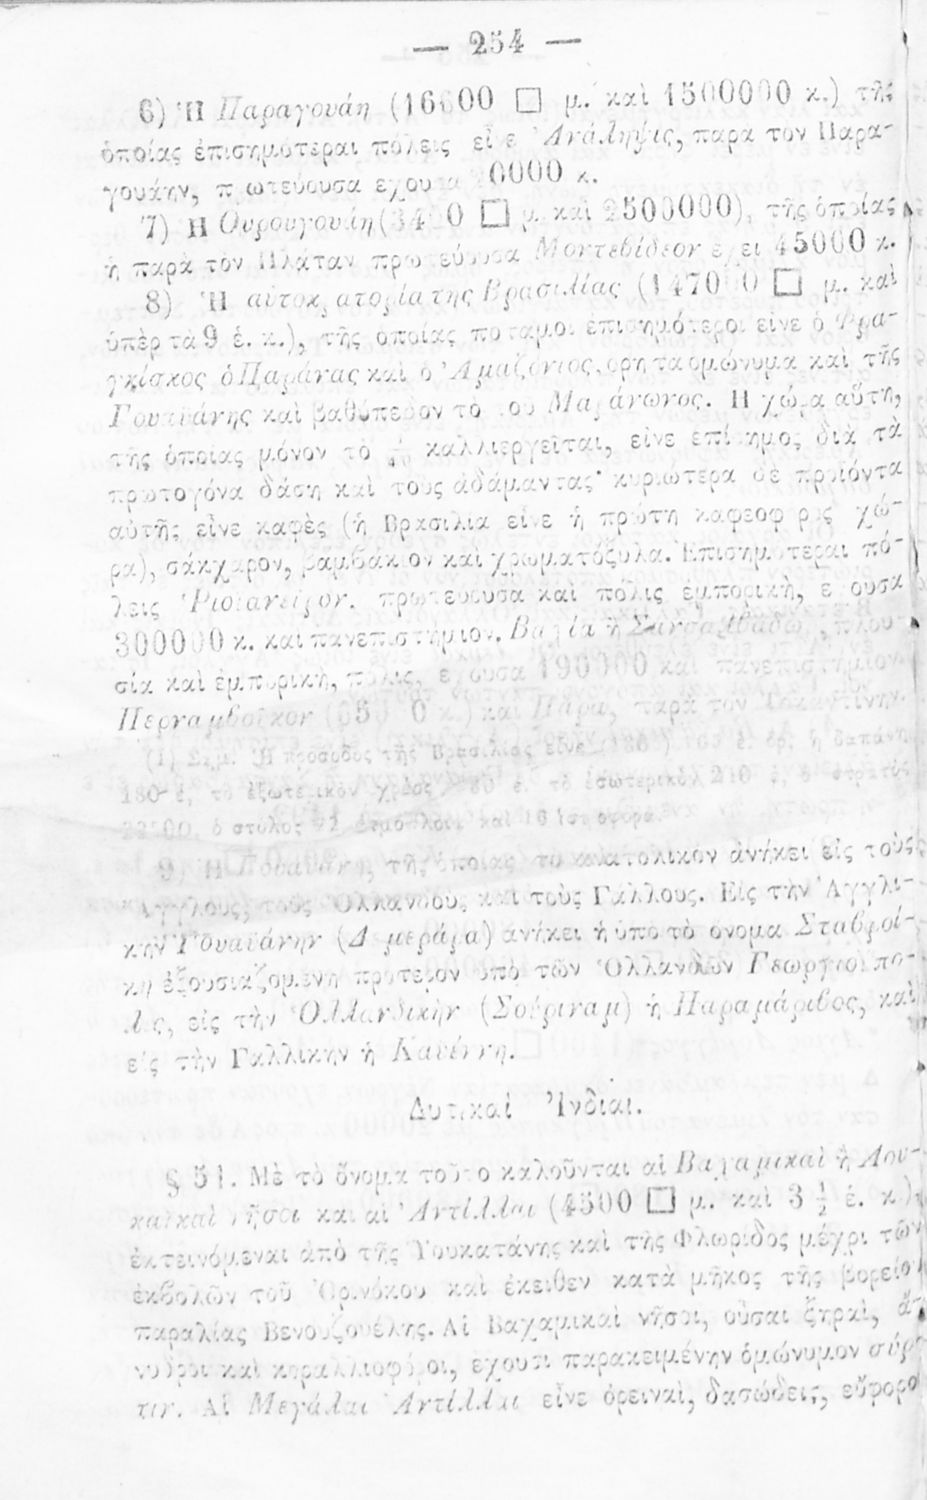 — 254 —
6) Ἡ Παραγουάη (16600 □ μ. καὶ 1500000 κ.) τῆς
ὁποίας ἐπισημότεραι πόλεις εἶνε Ἀνάληψις, παρὰ τὸν Παρα-
γουάην, πρωτεύουσα ἔχουσα 0000 κ.
7) Ἡ Οὐρουγουάη (34 0 □ μ. καὶ 2500000), τῆς ὁποίας
ἡ παρὰ τὸν Πλάταν πρωτεύουσα Μοντεβίδεον ἔχει 45000 κ.
8) Ἡ αὐτοκρατορία της Βρασιλίας (147000 □ μ. καὶ
ὑπὲρ τὰ 9 ἑ. κ.), τῆς ὁποίας ποταμοὶ ἐπισημότεροι εἶνε ὁ Φρα-
γκίσκος ὁ Παράνας καὶ ὁ Ἀμαζόνιος, ὄρη τα ομώνυμα καὶ τῆς
Γουϊάνης καὶ βαθύπεδον τὸ τοῦ Μαράνωνος. Ἡ χώρα αὕτη,
τῆς ὁποίας μόνον τὸ καλλιεργεῖται, εἶνε ἐπίσημος διὰ τὰ
πρωτογόνα δάση καὶ τοὺς ἀδάμαντας· κυριώτερα δὲ προϊόντα
αὐτῆς εἶνε καφὲς (ἡ Βρασιλία εἶνε ἡ πρώτη καφεοφόρος χώ-
ρα), σάκχαρον, βαμβάκιον καὶ χρωματόξυλα. Ἐπισημότεραι πό-
λεις Ῥιοϊανεῖρον, πρωτεύουσα καὶ πόλις ἐμπορικὴ, ἔχουσα
300000 κ. καὶ πανεπιστήμιον. Βαχία ἢ πλου-
σία καὶ ἐμπορικὴ, πόλις, ἔχουσα 190000 καὶ πανεπιστήμιον
Περναμβοῦκον κ.) καὶ Πάρα, παρὰ τὸν Τοκαντῖνην.
(1) Σημ. Ἡ πρόσοδος τῆς Βρασιλίας εἶνε ἑ. δρ. ἡ δαπάνη
180 ἑ, τὸ ἐξωτερικὸν χρέος ἑ. τὸ ἐσωτερικὸν 210 ἑ, ὁ στρατὸς
ὁ στόλος καὶ 16 ἱστιοφόρα.
9) Ἡ Γουϊάνη τῆς ὁποίας τὸ ἀνατολικὸν ἀνήκει εἰς τοὺς
Ἄγγλους, τοὺς Ὁλλανδοὺς καὶ τοὺς Γάλλους. Εἰς τὴν Ἀγγλι-
κὴν Γουϊάνην (Δεμεράρα) ἀνήκει ἡ ὑπὸ τὸ ὄνομα Σταβροί-
κη ἐξουσιαζομένη πρότερον ὑπὸ τῶν Ὁλλανδῶν Γεωργιούπο-
λις, εἰς τὴν Ὁλλανδικὴν (Σούριναμ) ἡ Παραμάριβος, καὶ
εἰς τὴν Γαλλικὴν ἡ Καϋέννη.
Δυτικαὶ Ἰνδίαι.
§ 51. Μὲ τὸ ὄνομα τοῦτο καλοῦνται αἱ Βαχαμικαὶ ἢ Λου-
καϊκαὶ νῆσοι καὶ αἱ Ἀντίλλαι (4500 □ μ. καὶ 3 ½ ἑ. κ.)
ἐκτεινόμεναι ἀπὸ τῆς Ὑουκατάνης καὶ τῆς Φλωρίδος μέχρι τῶν
ἐκβολῶν τοῦ Ὀρινόκου καὶ ἐκεῖθεν κατὰ μῆκος τῆς βορείου
παραλίας Βενουζουέλης. Αἱ Βαχαμικαὶ νῆσοι, οὖσαι ξηραὶ, ἄ-
νυδροι καὶ κοραλλιοφόροι, ἔχουσι παρακειμένην ὁμώνυμον σύρ-
τιν. Αἱ Μεγάλαι Ἀντίλλαι εἶνε ὀρειναὶ, δασώδεις, εὔφορο